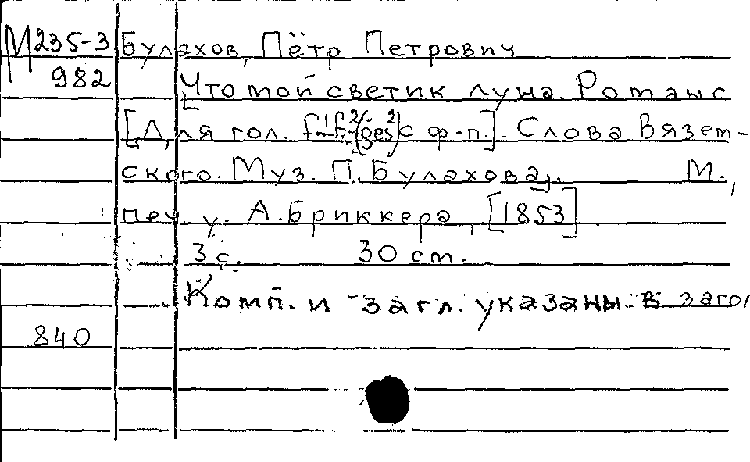 М 235-3 Булахов, Пётр Петрович
982 Что мой светик луна. Романс
[Для гол. f¹-f² (ges²) с ф-п.]. Слова Вязем-
ского. Муз. П. Булахова. М.,
печ. у. А. Бриккера, [1853]
3 с. 30 ст.
Комп. и загл. указаны в заго
840